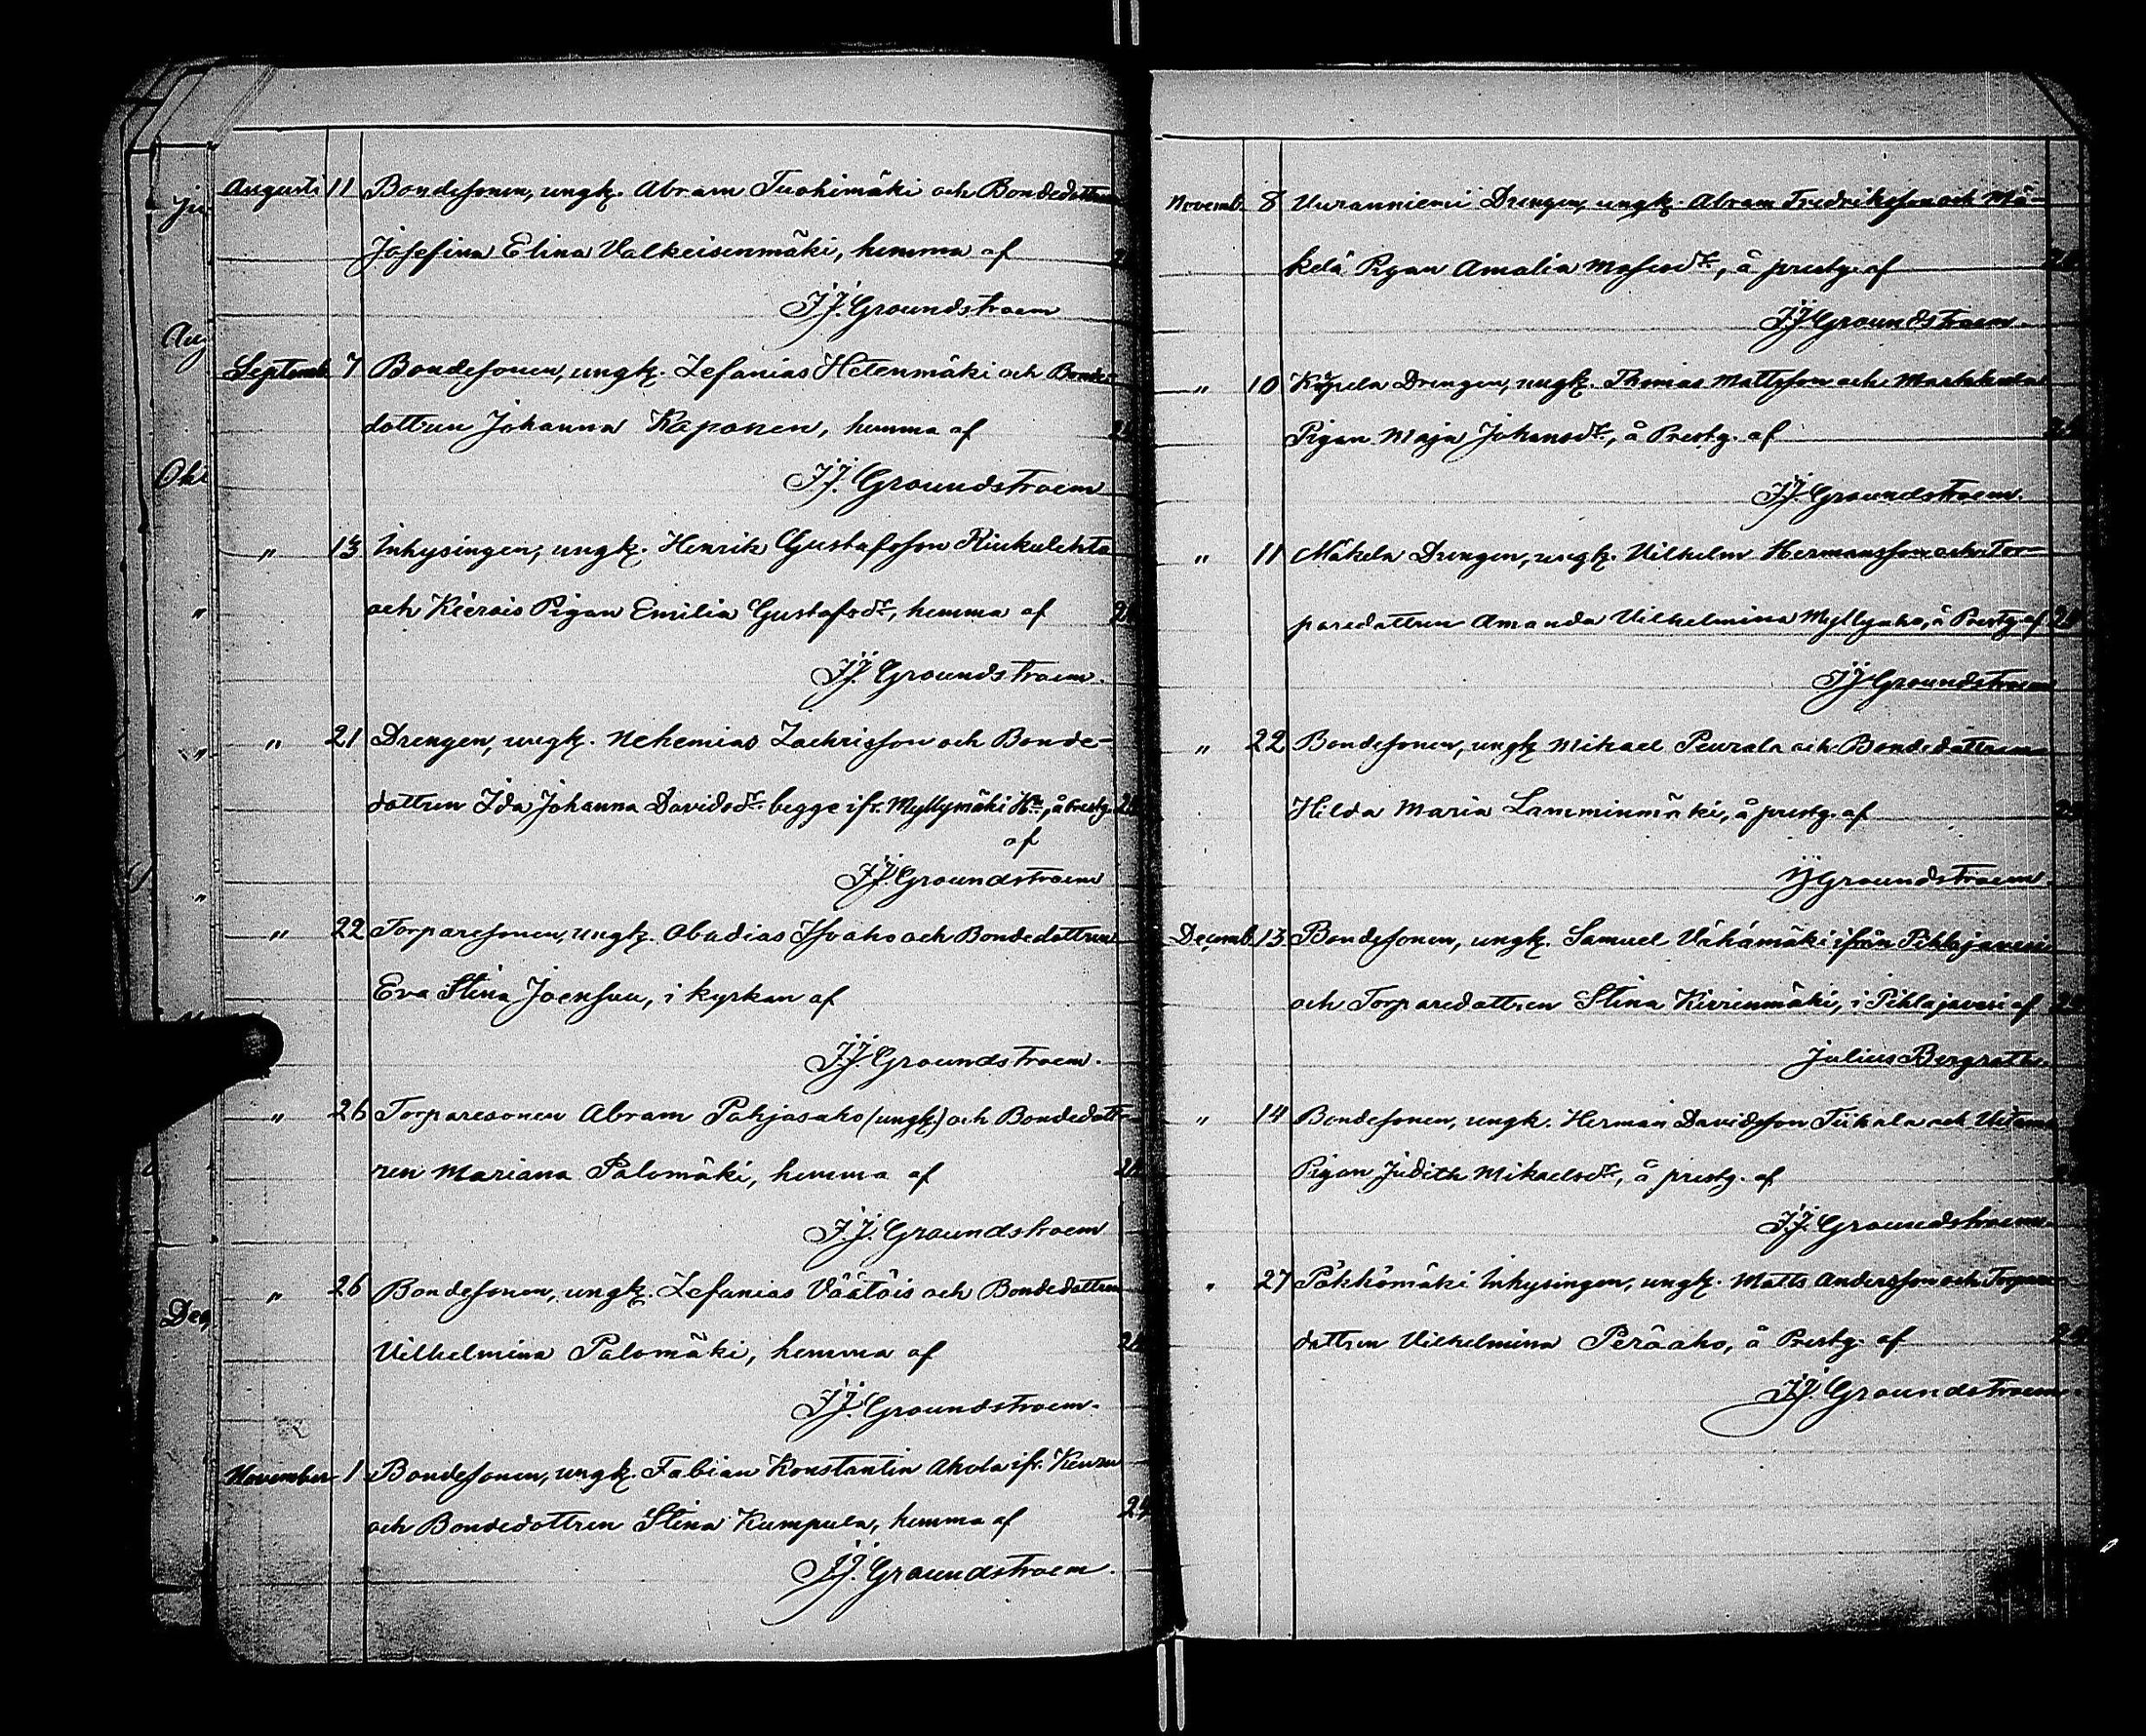 Augusti 11 Bondesonen, ungk. Abram Tuohimäki och Bondedottren
Josefina Elina Valkeisenmäki, hemma af
J.J. Groundstroem
Septemb. 7 Bondesonen, ungk. Zefanias Hetenmäki och Bonde-
dottren Johanna Kaponen, hemma af
J.J. Groundstroem
" 13 Inhysingen, ungk. Henrik Gustafsson Kiukulehto
och Kierois Pigan Emilia Gustafsdr, hemma af
J.J. Groundstroem.
" 21 Drengen, ungk. Nehemias Zachrisson och Bonde-
dottren Ida Johanna Davidsdr. begge ifr. Myllymäki Hn, å Prestg.
af
J.J. Groundstroem
" 22 Torparesonen, ungk. Obadias Isoaho och Bondedottren
Eva Stina Joensuu, i kyrkan af
J.J. Groundstroem.
" 26 Torparesonen Abram Pohjasaho (ungk.) och Bondedott-
ren Mariana Palomäki, hemma af
J.J. Groundstroem
" 26 Bondesonen, ungk. Zefanias Väätäis och Bondedottren
Vilhelmina Palomäki, hemma af
J.J. Groundstroem.
November 1 Bondesonen, ungk. Fabian Konstantin Ahola ifr. Keuru
och Bondedottren Stina Kumpula, hemma af
J.J. Groundstroem.
Novemb. 8 Vuranniemi Drengen, ungk. Abram Fredriksson och Mä-
kelä Pigan Amalia Mosesdr, å prestg. af
J.J. Groundstroem.
" 10 Drengen, ungk. Thomas Mattsson och Markkula
Pigan Maja Johansdr, å Prestg. af
J.J. Groundstroem.
" 11 Mäkelä Drengen, ungk. Vilhelm Hermansson och Tor-
paredottren Amanda Vilhelmina Myllyaho, å Prestg. af
J.J. Groundstroem
" 22 Bondesonen, ungk. Mikael Peurala och Bondedottren
Hilda Maria Lamminmäki, å prestg. af
J.J. Groundstroem.
Decemb. 13 Bondesonen, ungk. Samuel Vähämäki ifrån Pihlajavesi
och Torparedottren Stina Kivirinmäki, i Pihlajavesi af
Julius Bergroth.
" 14 Bondesonen, ungk. Herman Davidsson Tiihala och
Pigan Judith Mikaelsdr, å prestg. af
J.J. Groundstroem.
" 27 Pökkömäki Inhysingen, ungk. Matts Andersson och Torpare
dottren Vilhelmina Peräaho, å Prestg. af
J.J. Groundstroem.